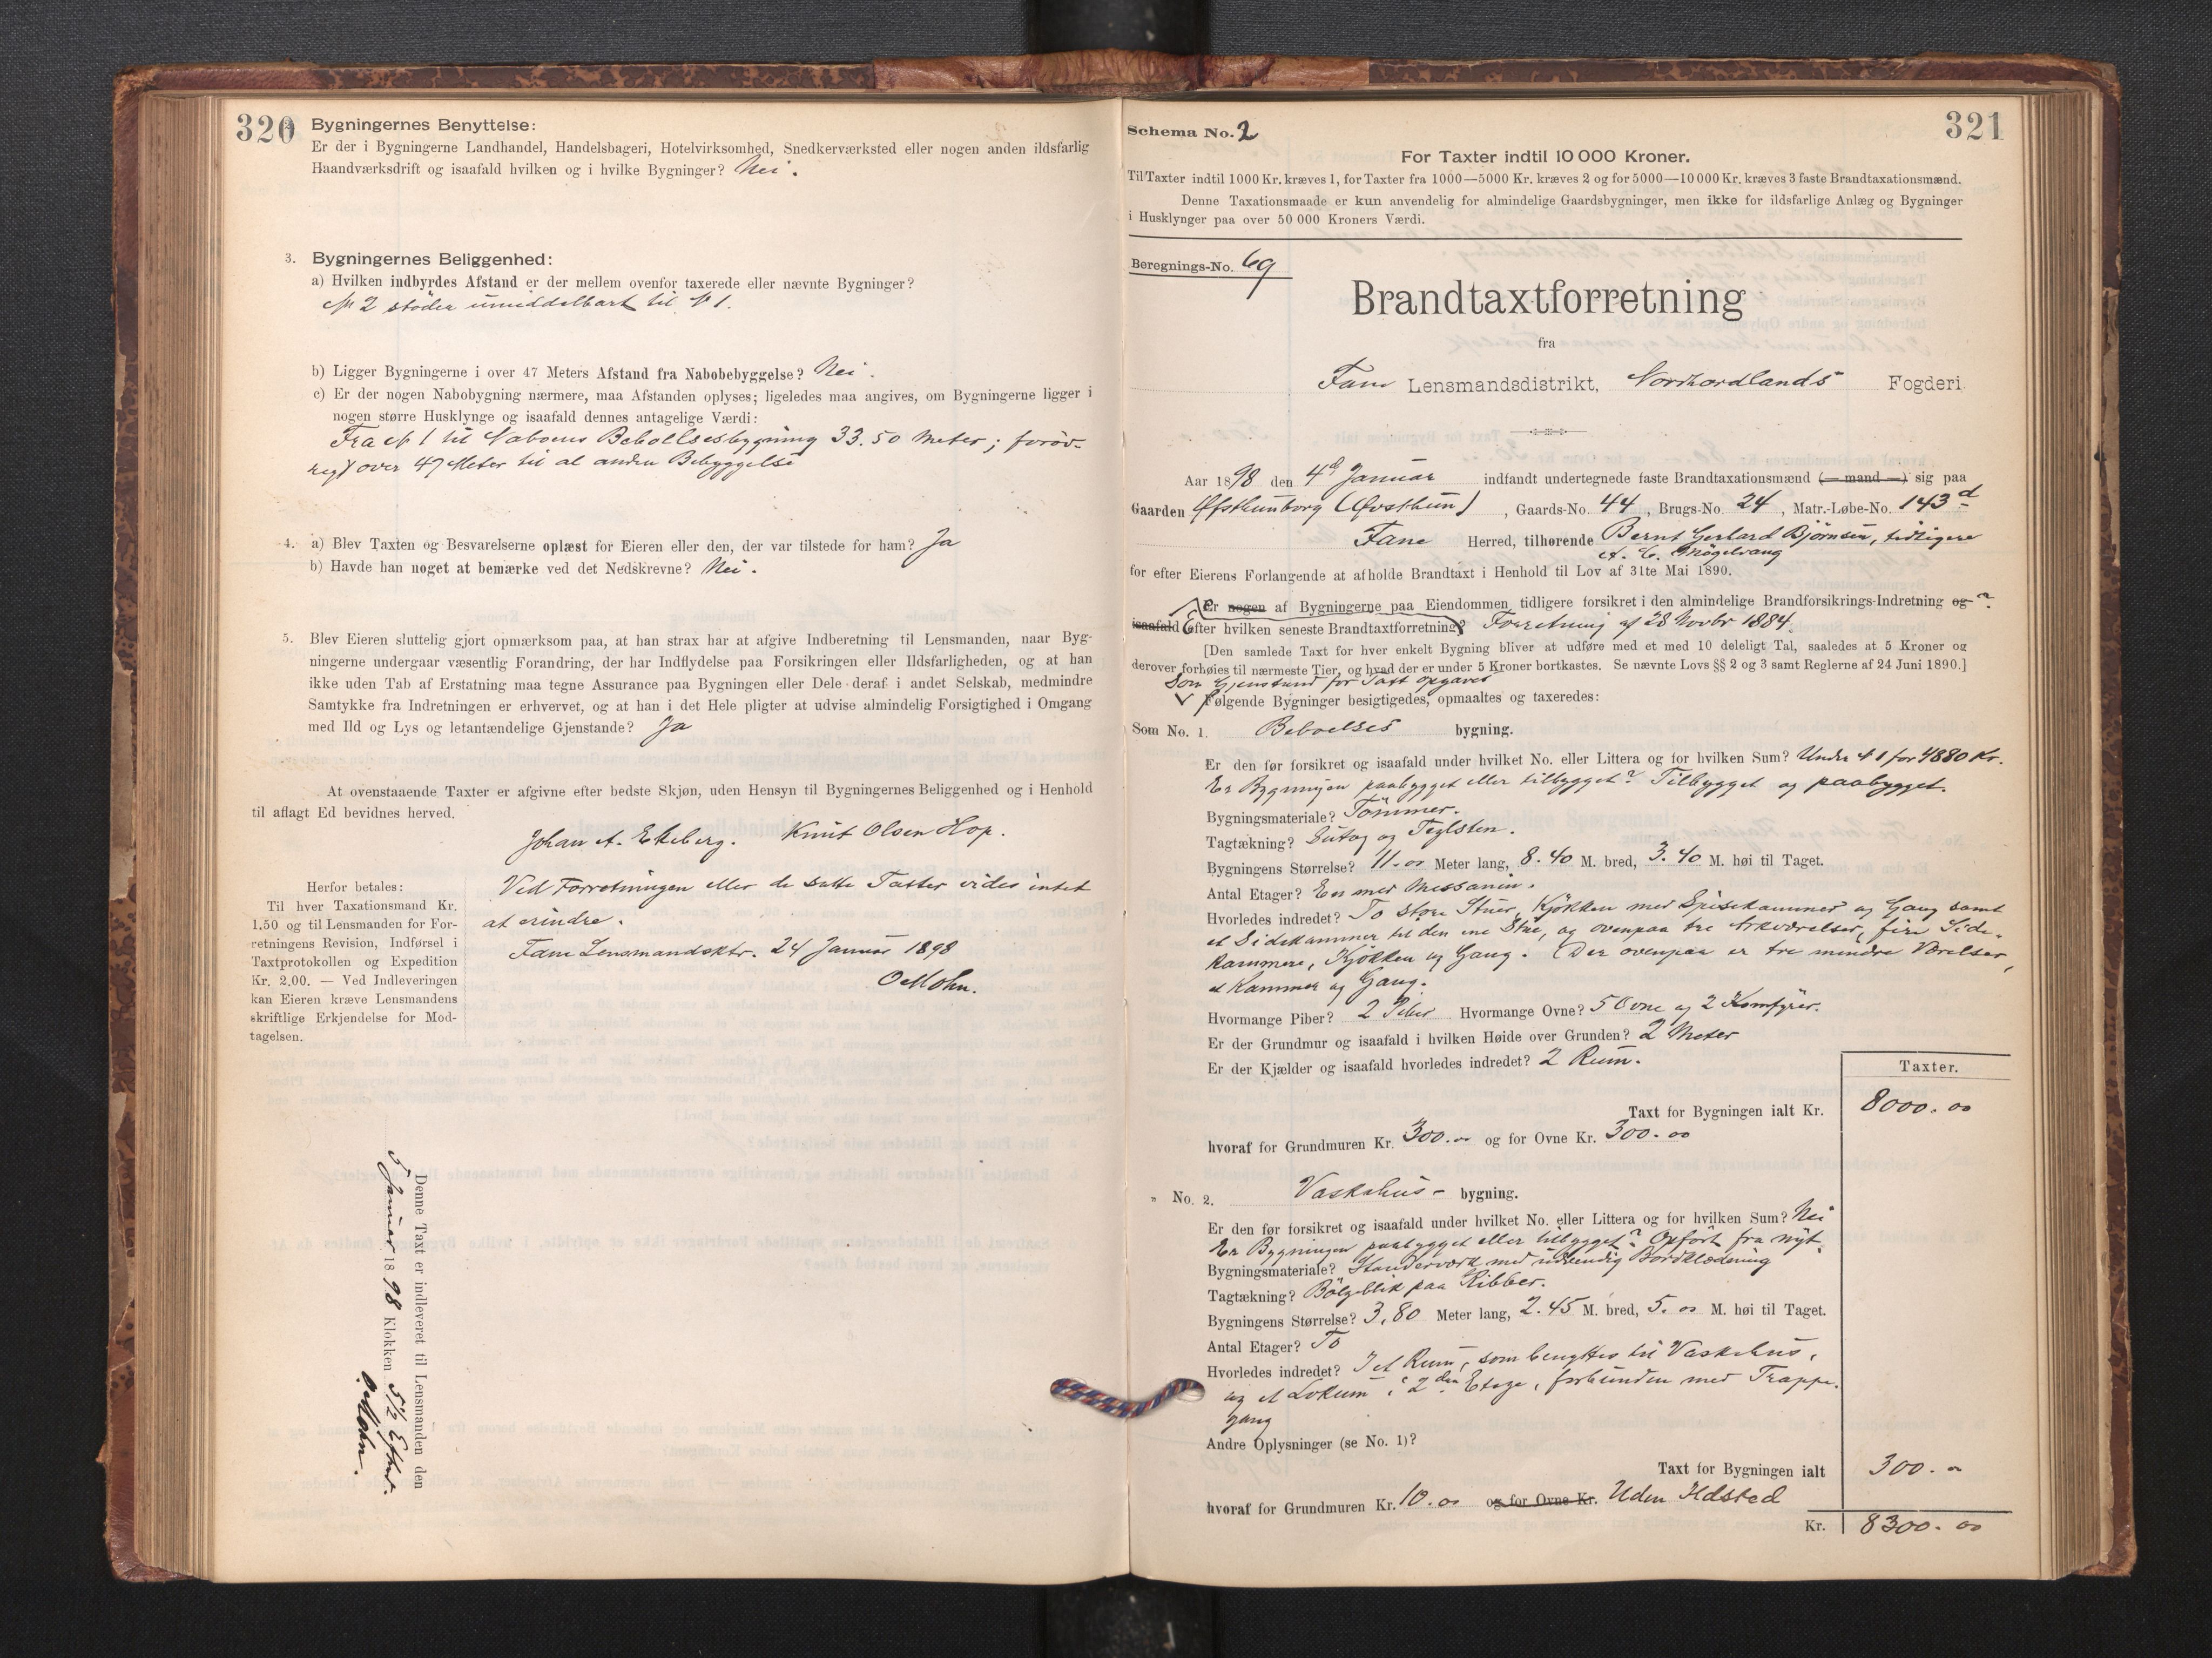 320
Bygningernes Benyttelse:
Er der i Bygningerne Landhandel, Handelsbageri, Hotelvirksomhed, Snedkerværksted eller nogen anden ildsfarlig
Haandværksdrift og isaafald hvilken og i hvilke Bygninger? Nei.
3. Bygningernes Beliggenhed:
a) Hvilken indbyrdes Afstand er der mellem ovenfor taxerede eller nævnte Bygninger?
№ 2 støder umiddelbart til № 1.
b) Ligger Bygningerne i over 47 Meters Afstand fra Nabobebyggelse? Nei.
c) Er der nogen Nabobygning nærmere, maa Afstanden oplyses; ligeledes maa angives, om Bygningerne ligger i
nogen større Husklynge og isaafald dennes antagelige Værdi:
Fra № 1 til Naboens Beboelsesbygning 33.50 Meter; forøv-
rigt over 47 Meter til al anden Bebyggelse
4. a) Blev Taxten og Besvarelserne oplæst for Eieren eller den, der var tilstede for ham? Ja
b) Havde han noget at bemærke ved det Nedskrevne? Nei.
5. Blev Eieren sluttelig gjort opmærksom paa, at han strax har at afgive Indberetning til Lensmanden, naar Byg-
ningerne undergaar væsentlig Forandring, der har Indflydelse paa Forsikringen eller Ildsfarligheden, og at han
ikke uden Tab af Erstatning maa tegne Assurance paa Bygningen eller Dele deraf i andet Selskab, medmindre
Samtykke fra Indretningen er erhvervet, og at han i det Hele pligter at udvise almindelig Forsigtighed i Omgang
med Ild og Lys og letantændelige Gjenstande? Ja
At ovenstaaende Taxter er afgivne efter bedste Skjøn, uden Hensyn til Bygningernes Beliggenhed og i Henhold
til aflagt Ed bevidnes herved.
Johan A. Ekeberg. Knut Olsen Hop.
Herfor betales:
Til hver Taxationsmand Kr.
1.50 og til Lensmanden for For-
retningens Revision, Indførsel i
Taxtprotokollen og Expedition
Kr. 2.00. — Ved Indleveringen
kan Eieren kræve Lensmandens
skriftlige Erkjendelse for Mod-
tagelsen.
Ved Forretningen eller de satte Taxter vides intet
at erindre.
Fane Lensmandsktr. 24 Januar 1898
O Mohn.
Denne Taxt er indleveret til Lensmanden den
5 Januar 1898 Klokken 5½ Efterm.
O Mohn.
321
Schema No. 2
For Taxter indtil 10 000 Kroner.
Til Taxter indtil 1000 Kr. kræves 1, for Taxter fra 1000—5000 Kr. kræves 2 og for 5000—10 000 Kr. kræves 3 faste Brandtaxationsmænd.
Denne Taxationsmaade er kun anvendelig for almindelige Gaardsbygninger, men ikke for ildsfarlige Anlæg og Bygninger
i Husklynger paa over 50 000 Kroners Værdi.
Beregnings-No. 69
Brandtaxtforretning
fra
Fane Lensmandsdistrikt, Nordhordlands Fogderi
Aar 1898 den 4d Januar indfandt undertegnede faste Brandtaxationsmænd (— mand —) sig paa
Gaarden Øfsthunborg (Øvsthun), Gaards-No. 44, Brugs-No. 24, Matr.-Løbe-No. 143 d
Fane Herred, tilhørende Bernt Gerhard Bjørnsen, tidligere
A. C. Møgelvang
for efter Eierens Forlangende at afholde Brandtaxt i Henhold til Lov af 31te Mai 1890.
Er nogen af Bygningerne paa Eiendommen tidligere forsikret i den almindelige Brandforsikrings-Indretning og ?
isaafald Efter hvilken seneste Brandtaxtforretning? Forretning af 28 Novbr 1884.
[Den samlede Taxt for hver enkelt Bygning bliver at udføre med et med 10 deleligt Tal, saaledes at 5 Kroner og
derover forhøies til nærmeste Tier, og hvad der er under 5 Kroner bortkastes. Se nævnte Lovs §§ 2 og 3 samt Reglerne af 24 Juni 1890.]
Som Gjenstand for Taxt opgaves
Følgende Bygninger besigtigedes, opmaaltes og taxeredes:
Som No. 1. Beboelses bygning.
Er den før forsikret og isaafald under hvilket No. eller Littera og for hvilken Sum? Under № 1 for 4880 Kr.
Er Bygningen paabygget eller tilbygget? Tilbygget og paabygget.
Bygningsmateriale? Tømmer.
Tagtækning? Sutag og Teglsten.
Bygningens Størrelse? 11.00 Meter lang, 8.40 M. bred, 3.40 M. høi til Taget.
Antal Etager? En med Messanin.
Hvorledes indredet? To store Stuer, Kjøkken med Spisekammer og Gang samt
et Sidekammer til den ene Stue, og ovenpaa tre Arkværelser, fire Side-
kammere, Kjøkken og Gang. Der ovenpaa er tre mindre Værelser,
et Kammer og Gang.
Hvormange Piber? 2 Piber Hvormange Ovne? 5 Ovne og 2 Komfyrer.
Er der Grundmur og isaafald i hvilken Høide over Grunden? 2 Meter
Er der Kjælder og isaafald hvorledes indredet? 2 Rum.
Taxter.
Taxt for Bygningen ialt Kr. 8000.00
hvoraf for Grundmuren Kr. 300.00 og for Ovne Kr. 300.00
" No. 2. Vaskehus- bygning.
Er den før forsikret og isaafald under hvilket No. eller Littera og for hvilken Sum? Nei
Er Bygningen paabygget eller tilbygget? Opført fra nyt.
Bygningsmateriale? Standerværk med udvendig Bordklædning
Tagtækning? Bølgeblik paa Ribber.
Bygningens Størrelse? 3,80 Meter lang, 2.45 M. bred, 5.00 M. høi til Taget.
Antal Etager? To
Hvorledes indredet? I et Rum, som benyttes til Vaskehus,
og et Lokum i 2den Etage, forbunden med Trappe-
gang
Andre Oplysninger (se No. 1)?
Taxt for Bygningen ialt 300.00
hvoraf for Grundmuren Kr. 10.00 og for Ovne Kr. Uden Ildsted
Kr. 8300.00